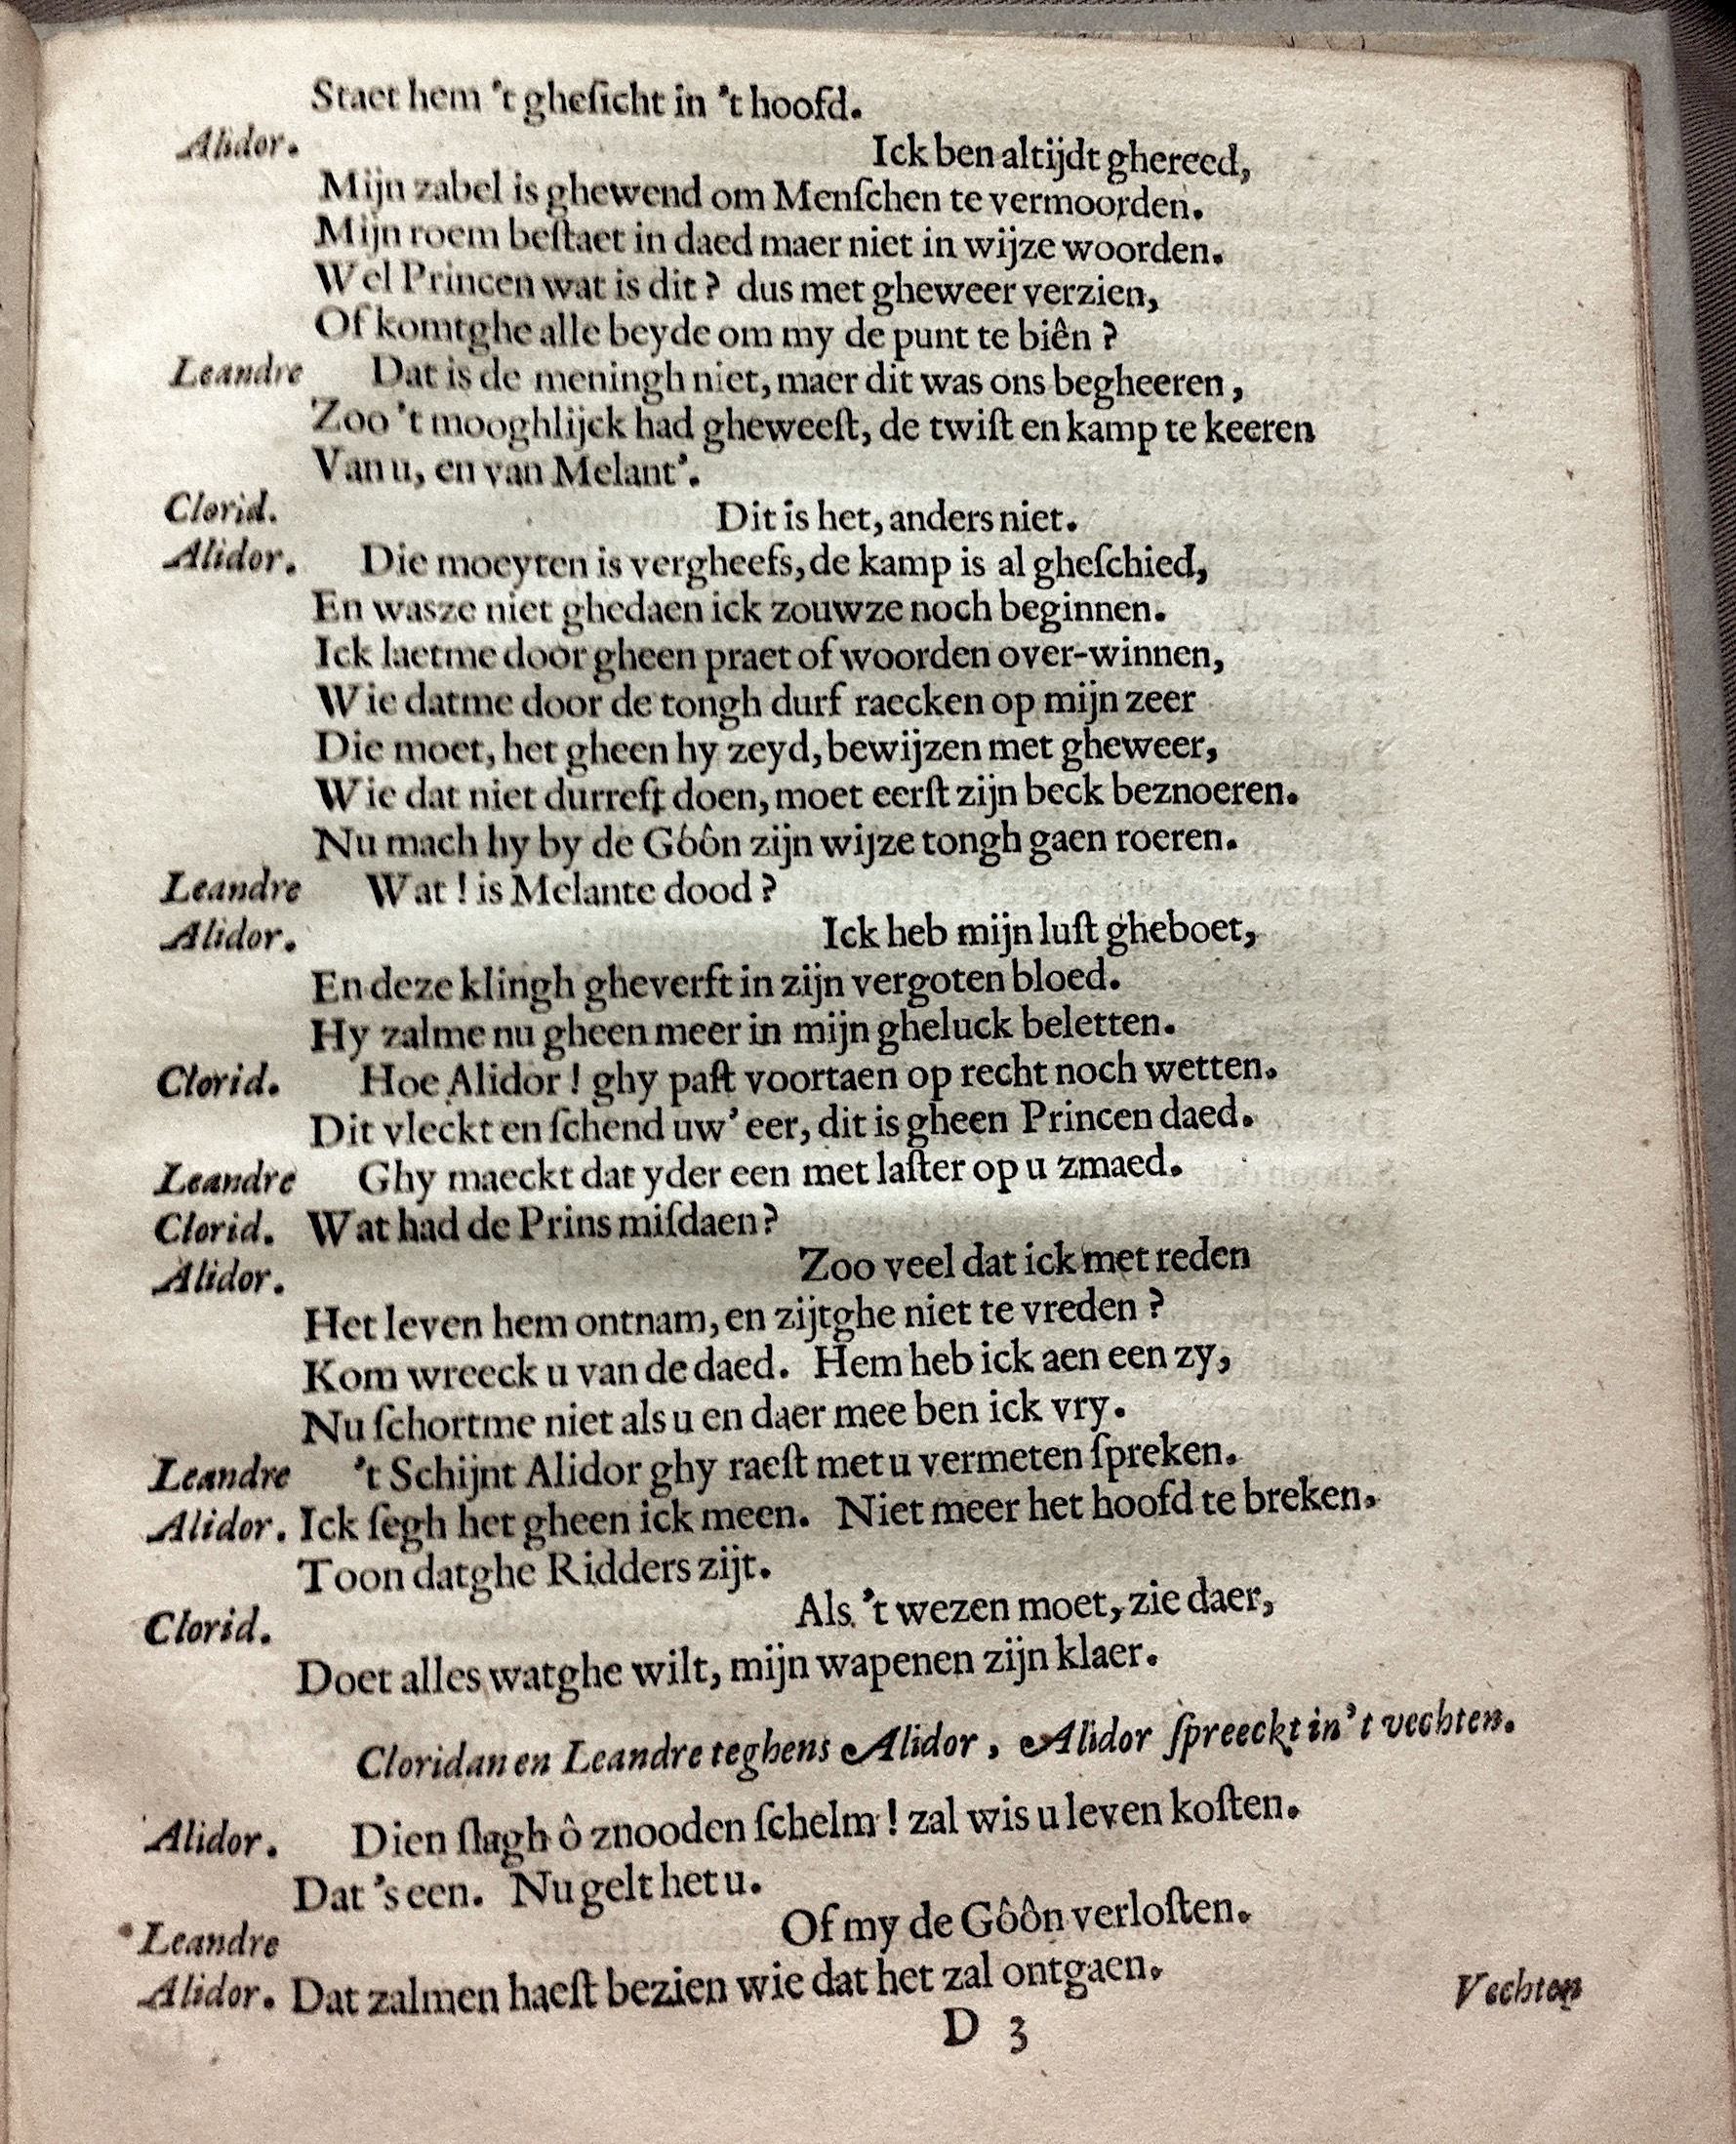 Staet hem 't gheſicht in 't hoofd.
Alidor. Ick ben altijdt ghereed,
Mijn zabel is ghewend om Menſchen te vermoorden.
Mijn roem beſtaet in daed maer niet in wijze woorden.
Wel Princen wat is dit? dus met gheweer verzien,
Of komtghe alle beyde om my de punt te biên?
Leandre Dat is de meningh niet, maer dit was ons begheeren,
Zoo 't mooghlijck had gheweeſt, de twiſt en kamp te keeren
Van u, en van Melant'.
Clorid. Dit is het, anders niet.
Alidor. Die moeyten is vergheefs, de kamp is al gheſchied,
En wasze niet ghedaen ick zouwze noch beginnen.
Ick laetme door gheen praet of woorden over-winnen,
Wie datme door de tongh durf raecken op mijn zeer
Die moet, het gheen hy zeyd, bewijzen met gheweer,
Wie dat niet durreſt doen, moet eerſt zijn beck beznoeren.
Nu mach hy by de Góôn zijn wijze tongh gaen roeren.
Leandre Wat! is Melante dood?
Alidor. Ick heb mijn luſt gheboet,
En deze klingh gheverft in zijn vergoten bloed.
Hy zalme nu gheen meer in mijn gheluck beletten.
Clorid. Hoe Alidor! ghy paſt voortaen op recht noch wetten.
Dit vleckt en ſchend uw' eer, dit is gheen Princen daed.
Leandre Ghy maeckt dat yder een met laſter op u zmaed.
Clorid. Wat had de Prins miſdaen?
Alidor. Zoo veel dat ick met reden
Het leven hem ontnam, en zijtghe niet te vreden?
Kom wreeck u van de daed. Hem heb ick aen een zy,
Nu ſchortme niet als u en daer mee ben ick vry.
Leandre 't Schijnt Alidor ghy raeſt met u vermeten ſpreken.
Alidor. Ick ſegh het gheen ick meen. Niet meer het hoofd te breken.
Toon datghe Ridders zijt.
Clorid. Als 't wezen moet, zie daer,
Doet alles watghe wilt, mijn wapenen zijn klaer.
Cloridan en Leandre teghens Alidor, Alidor ſpreeckt in 't vechten.
Alidor. Dien ſlagh ô znooden ſchelm! zal wis u leven koſten.
Dat 's een. Nu gelt het u.
Leandre Of my de Gôôn verloſten.
Alidor. Dat zalmen haeſt bezien wie dat het zal ontgaen.
Vechten
D 3